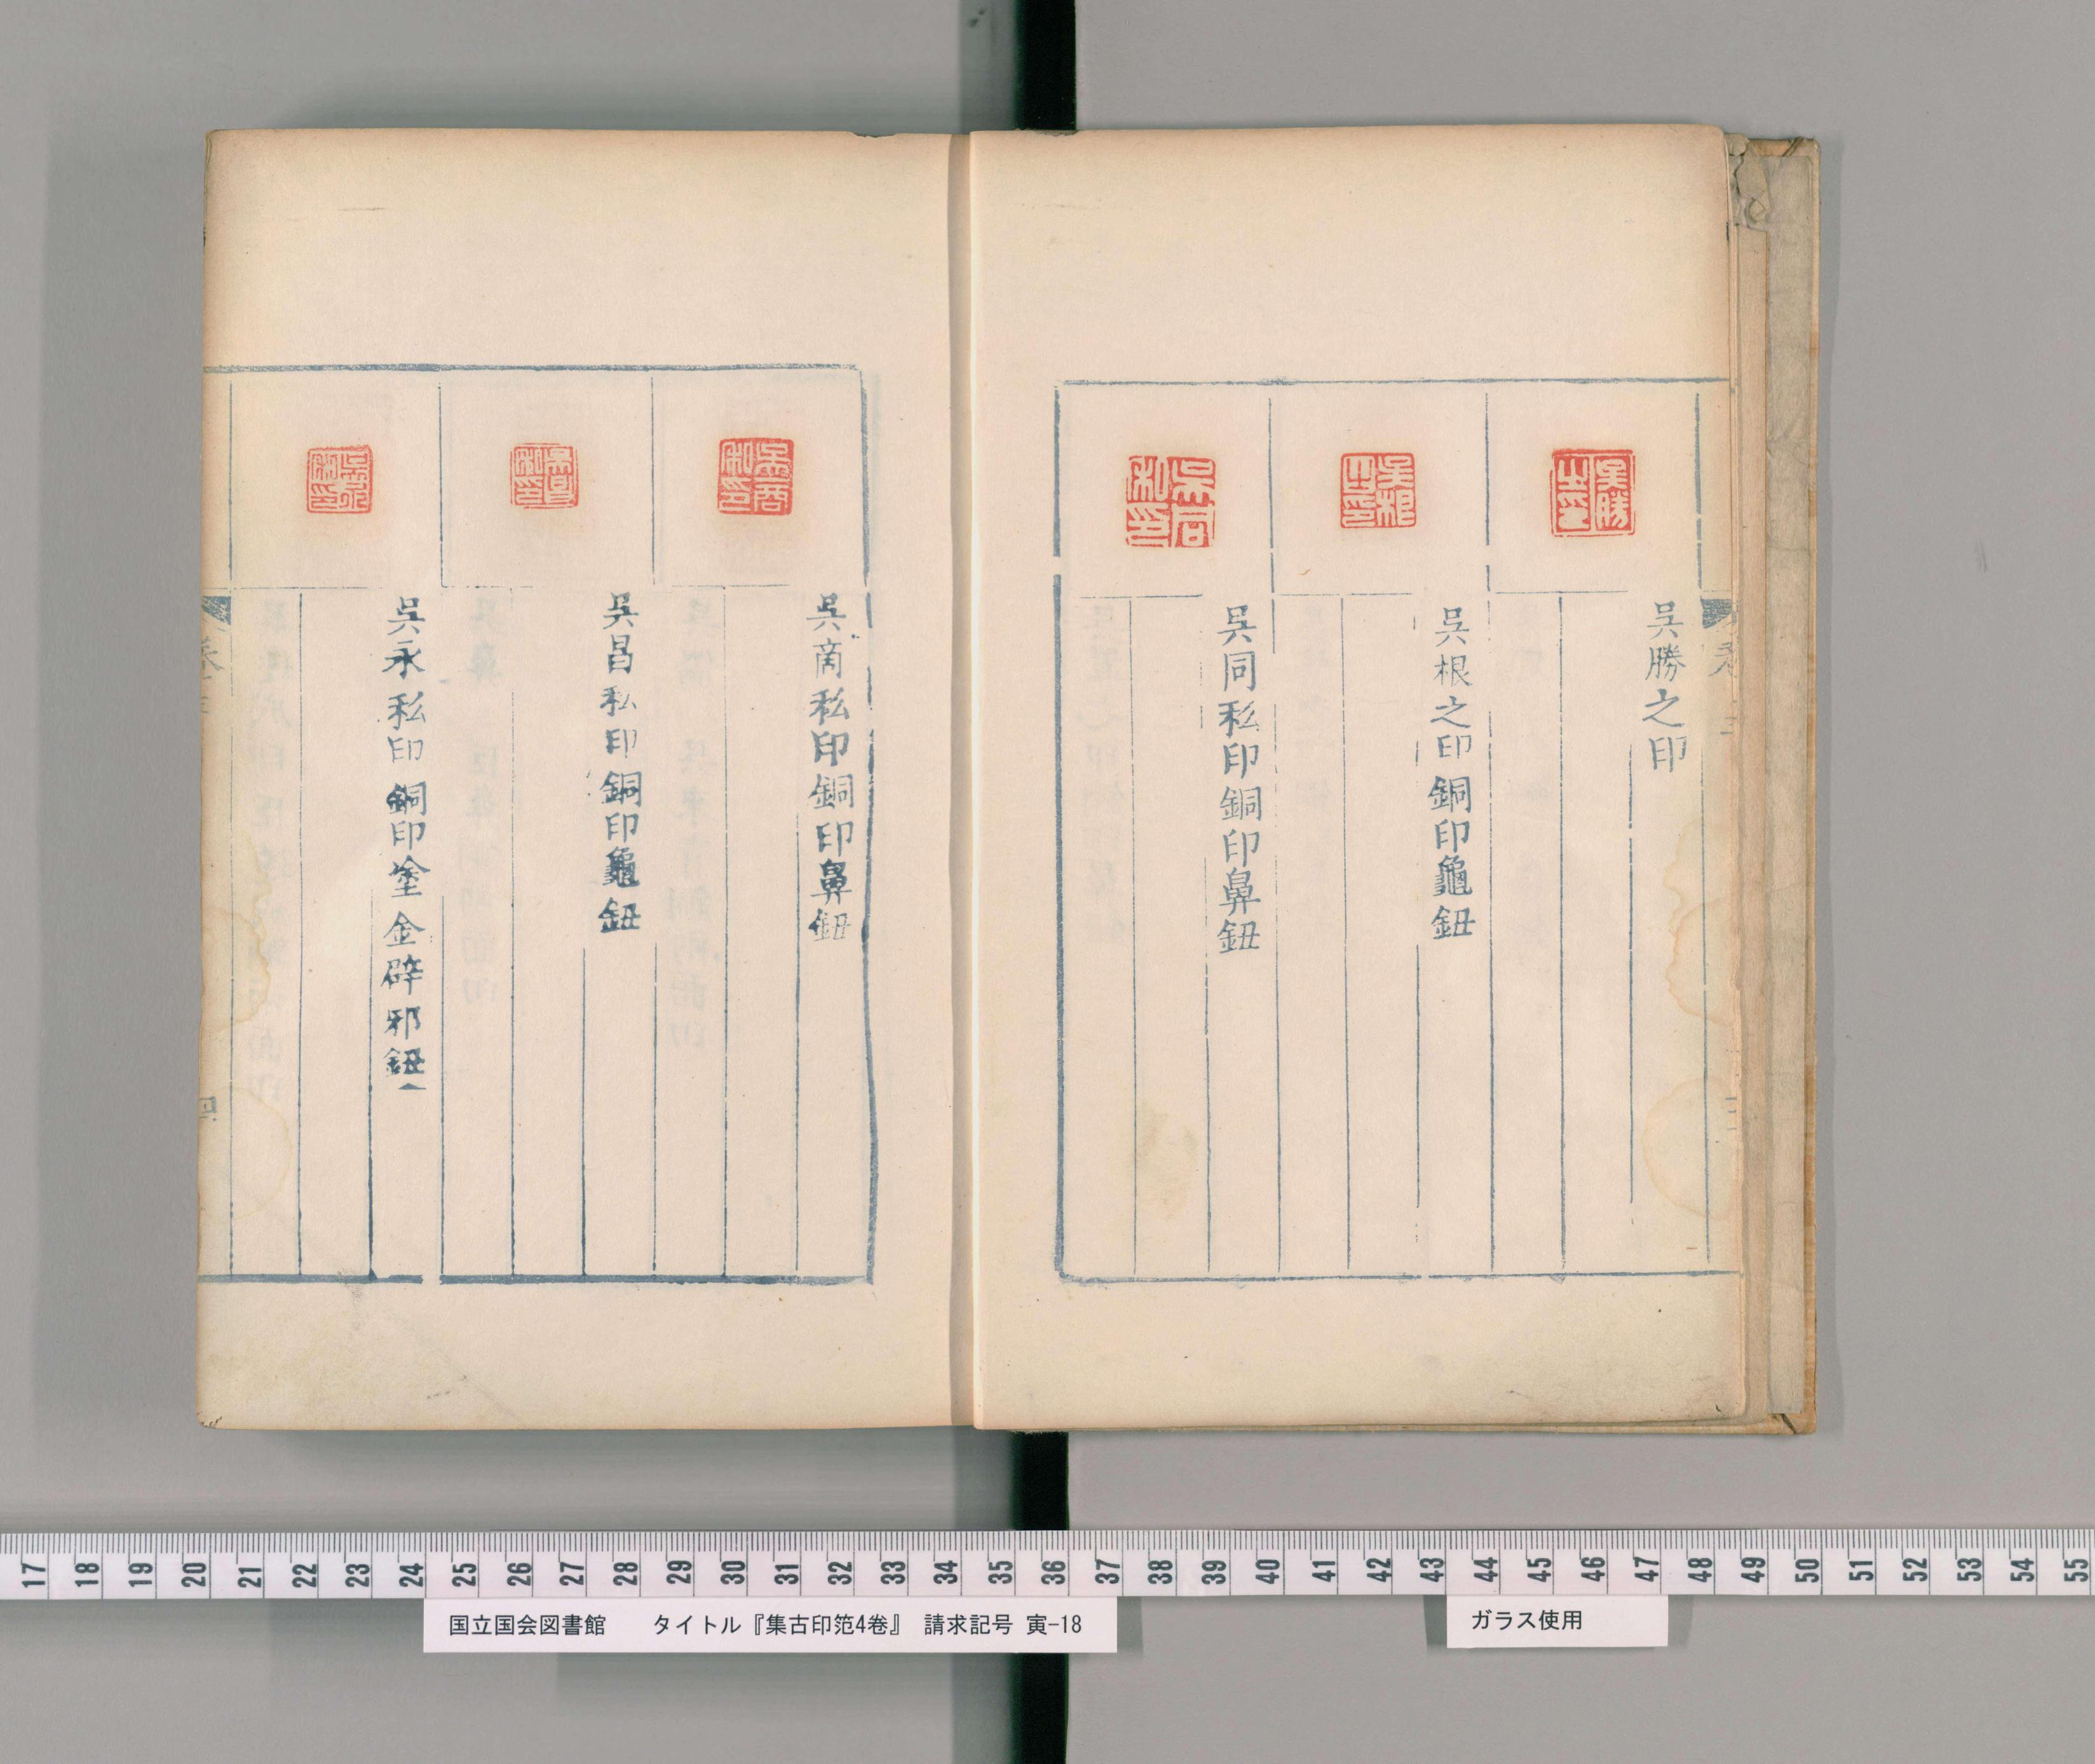 吳勝之印
吳根之印銅印龜鈕
吳同私印銅印鼻鈕
吳商私印銅印鼻鈕
吳昌私印銅印龜鈕
吳永私印銅印塗金辟邪鈕
17 18 19 20 21 22 23 24 25 26 27 28 29 30 31 32 33 34 35 36 37 38 39 40 41 42 43 44 45 46 47 48 49 50 51 52 53 54 55
国立国会図書館 タイトル『集古印笵4巻』 請求記号 寅-18
ガラス使用